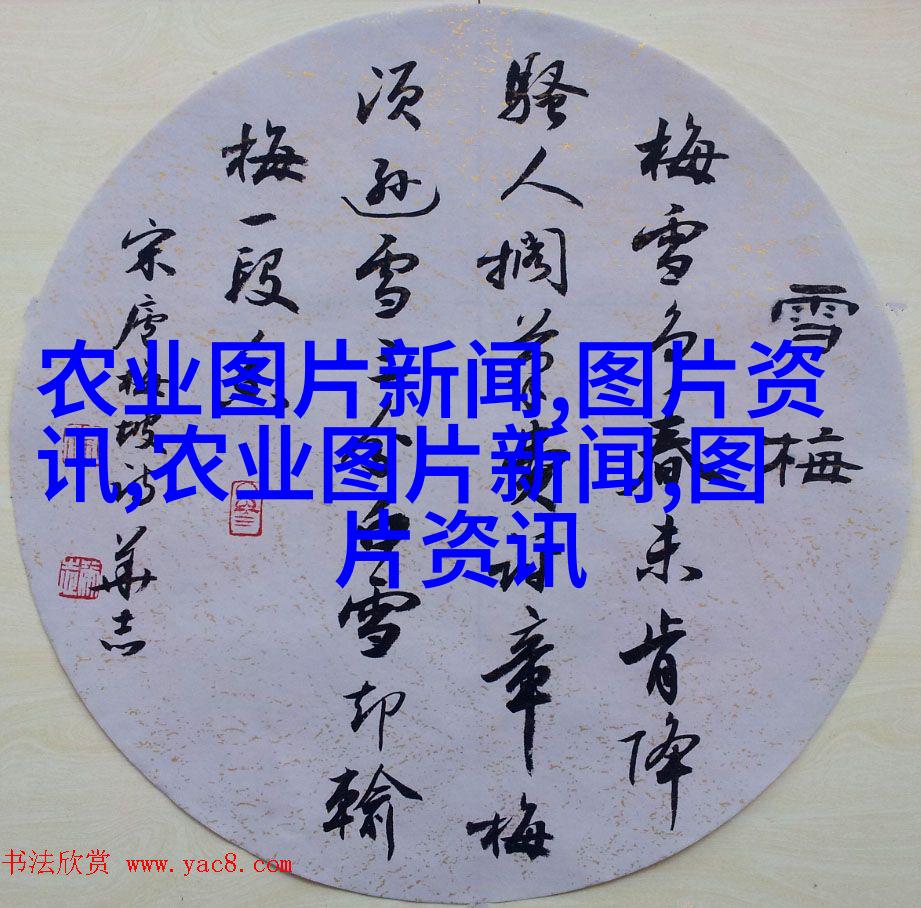 雪梅
梅雪争春未肯降
骚人搁笔费评章梅
须逊雪三分白雪却输
梅一段香
宋卢梅坡诗 华志
农业图片新闻,图片资
讯,农业图片新闻,图
片资讯
书法欣赏 www.yac8.com